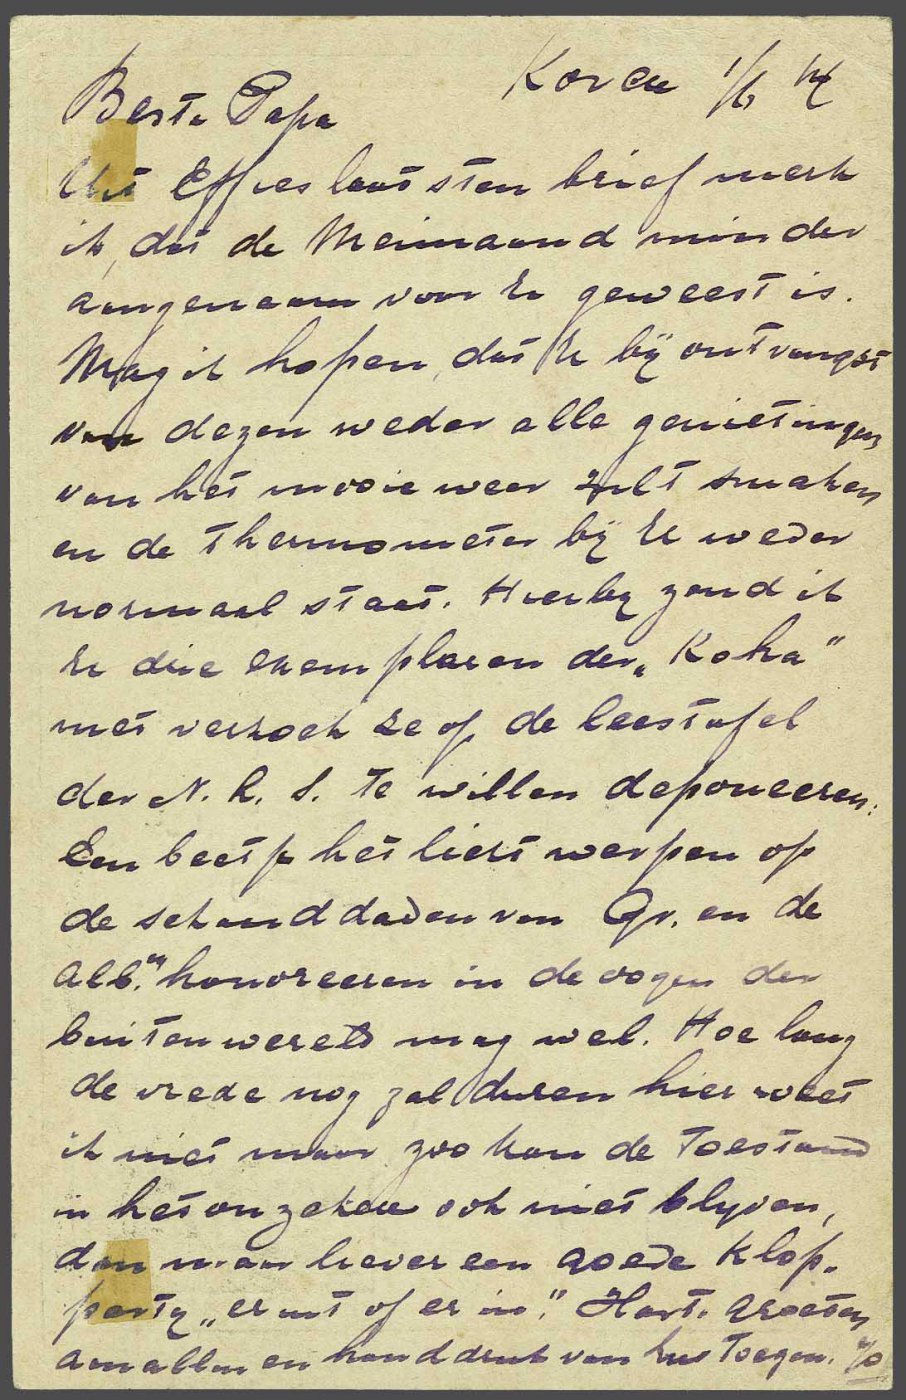 Korca 1/6 14
Beste Papa
Uit Effies laatsten brief merk
ik, dat de Meimaand minder
aangenaam voor U geweest is.
Mag ik hopen, dat U bij ontvangst
van dezen weder alle genietingen
van het mooie weer zult smaken
en de thermometer bij U weder
normaal staat. Hierby zend ik
U drie exemplaren der „Koha"
met verzoek ze op de leestafel
der N. L. S. te willen deponeeren.
Een beetje het licht werpen op
de schanddaden van Gr. en de
Alb.en honoreeren in de oogen der
buitenwereld mag wel. Hoe lang
de vrede nog zal duren hier weet
ik niet maar zoo kan de toestand
in het onzekere ook niet blyven,
dan maar liever een goede klop-
party „er uit of er in". Hart. groeten
aan allen en handdruk van Uw toegen.